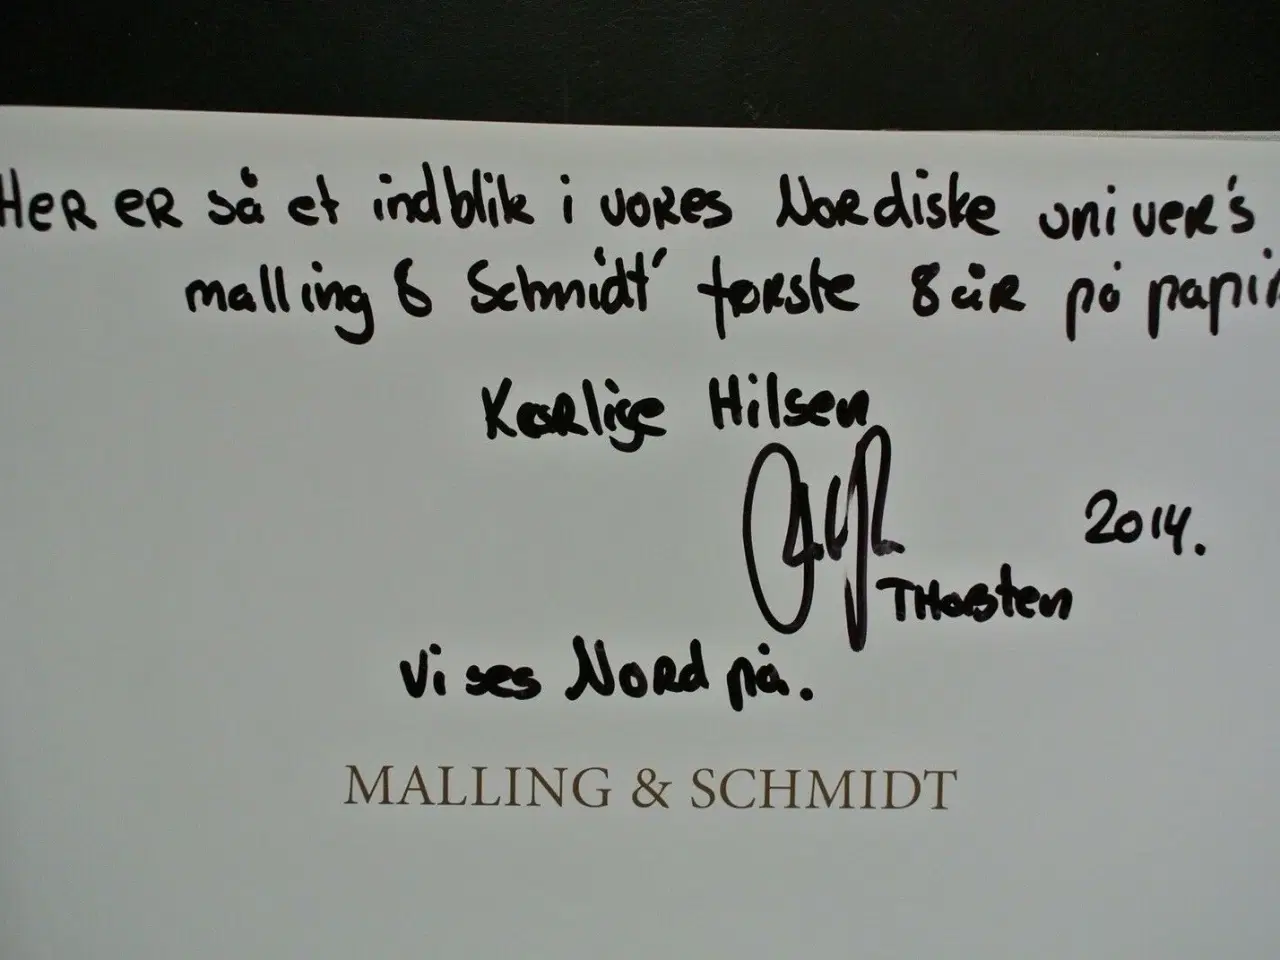 HER ER så et indblik i vores Nordiske univers
malling & Schmidt' første 8 år på papir
Kærlige Hilsen
2014.
THorsten
Vi ses Nord på.
MALLING & SCHMIDT